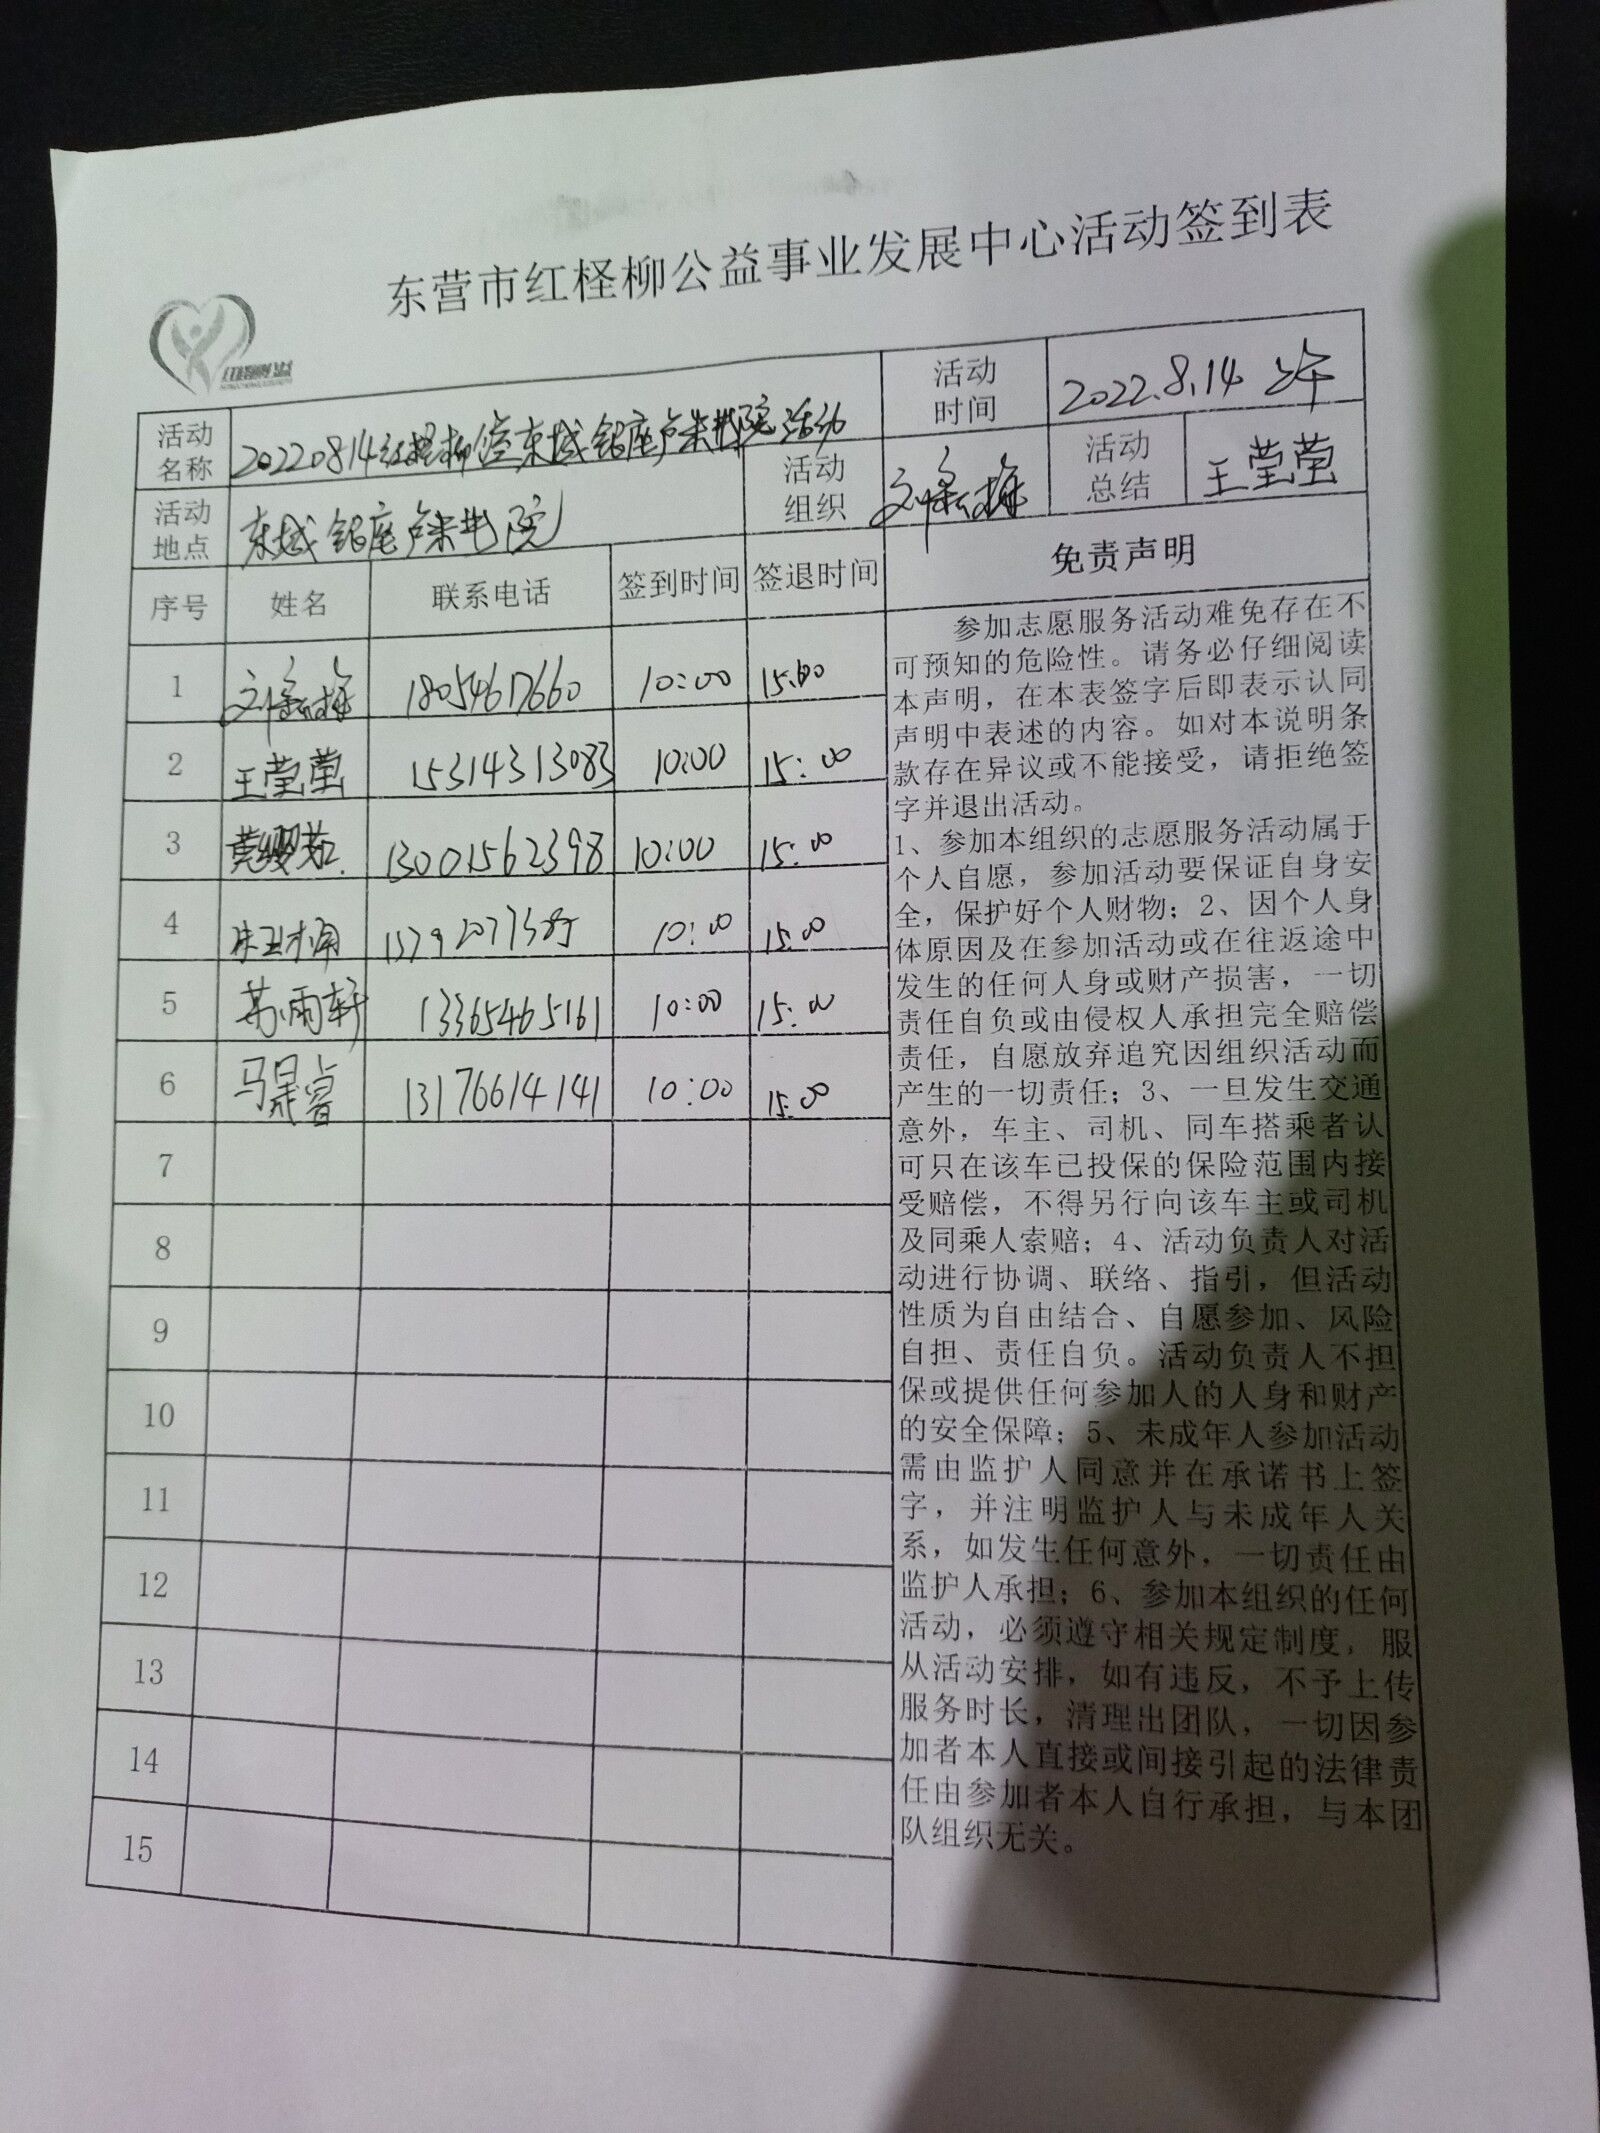 东营市红柽柳公益事业发展中心活动签到表
活动名称
活动时间
2022.8.14 上午
活动地点
活动组织
活动总结
王莹莹
序号 姓名 联系电话 签到时间 签退时间
免责声明
1 18054617660 10:00 15:00
2 王莹莹 15314313083 10:00 15:00
3 黄缨茹 13001562398 10:00 15:00
4 10:00 15:00
5 苏雨轩 13365465161 10:00 15:00
6 马晟睿 13176614141 10:00 15:00
7
8
9
10
11
12
13
14
15
参加志愿服务活动难免存在不
可预知的危险性。请务必仔细阅读
本声明，在本表签字后即表示认同
声明中表述的内容。如对本说明条
款存在异议或不能接受，请拒绝签
字并退出活动。
1、参加本组织的志愿服务活动属于
个人自愿，参加活动要保证自身安
全，保护好个人财物；2、因个人身
体原因及在参加活动或在往返途中
发生的任何人身或财产损害，一切
责任自负或由侵权人承担完全赔偿
责任，自愿放弃追究因组织活动而
产生的一切责任；3、一旦发生交通
意外，车主、司机、同车搭乘者认
可只在该车已投保的保险范围内接
受赔偿，不得另行向该车主或司机
及同乘人索赔；4、活动负责人对活
动进行协调、联络、指引，但活动
性质为自由结合、自愿参加、风险
自担、责任自负。活动负责人不担
保或提供任何参加人的人身和财产
的安全保障；5、未成年人参加活动
需由监护人同意并在承诺书上签
字，并注明监护人与未成年人关
系，如发生任何意外，一切责任由
监护人承担；6、参加本组织的任何
活动，必须遵守相关规定制度，服
从活动安排，如有违反，不予上传
服务时长，清理出团队，一切因参
加者本人直接或间接引起的法律责
任由参加者本人自行承担，与本团
队组织无关。